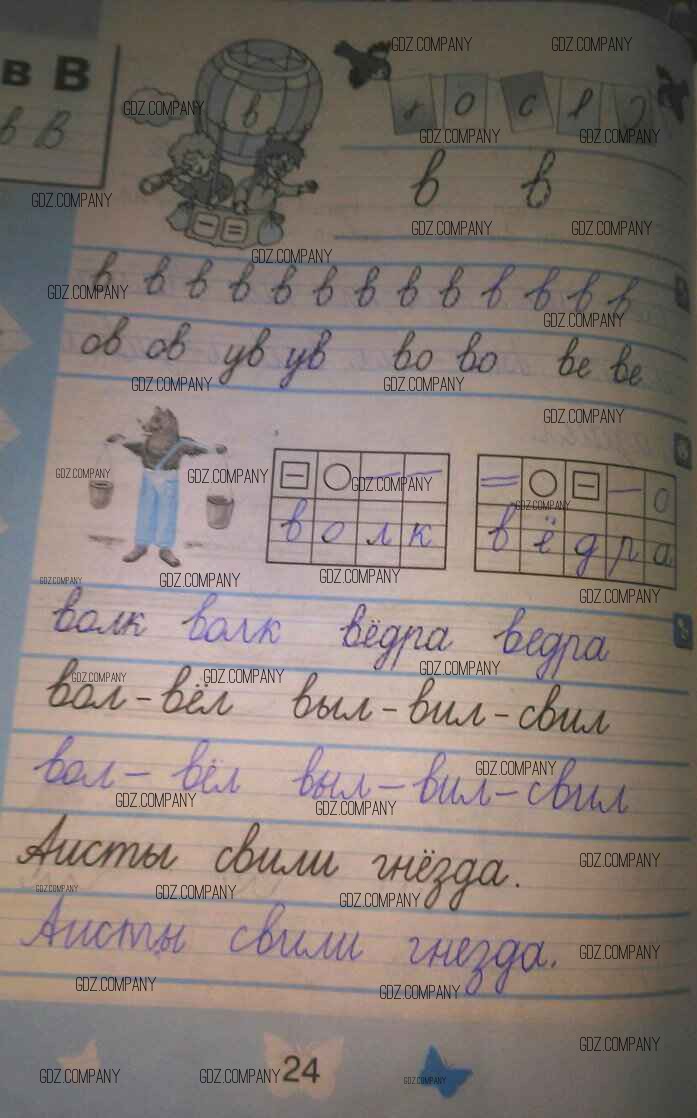 в В
в В
в
о с
в в
в в в в в в в в в в в в в
ов ов ув ув во во ве ве
в о л к
в ё д р а
волк волк вёдра ведра
вол – вёл выл – вил – свил
вол – вёл выл – вил – свил
Аисты свили гнёзда.
Аисты свили гнезда.
24
GDZ.COMPANY